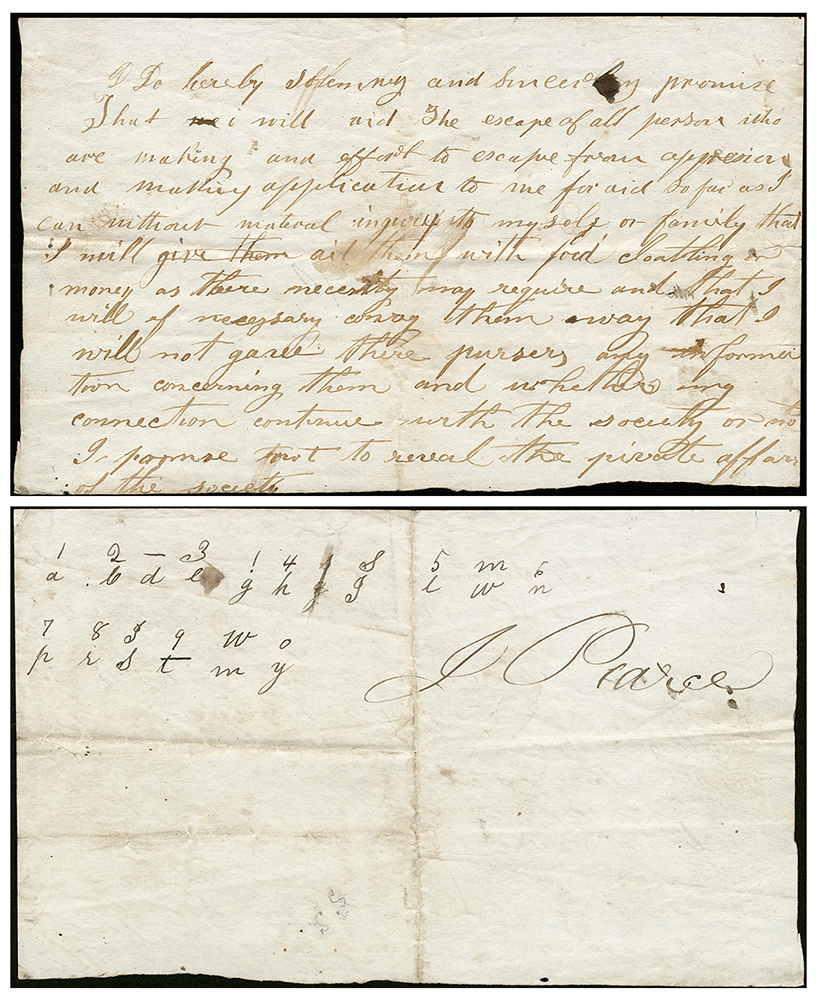 I Do hereby solemnly and sincerely promise
That i will aid The escape of all person who
are making and effort to escape from oppresion
and making application to me for aid so far as I
can without material injury to myself or family that
I will give them aid them with food cloathing or
money as there necessity may require and that I
will if necessary convay them away that I
will not gave there pursers any informa
tion concerning them and whether my
connection continue with the society or no
I promise not to reveal the private affairs
of the society
1 2 — 3 1 4 S 5 m 6
a b d e g h I l w n
7 8 I 9 W o
p r s t m y
J Pearce